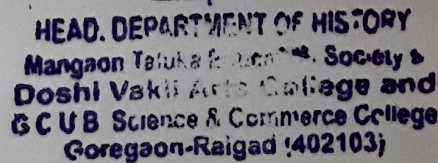 HEAD. DEPARTMENT OF HISTORY
Mangaon Taluka Society &
Doshi Vakil Arts College and
G C U B Science & Commerce College
Goregaon-Raigad (402103)